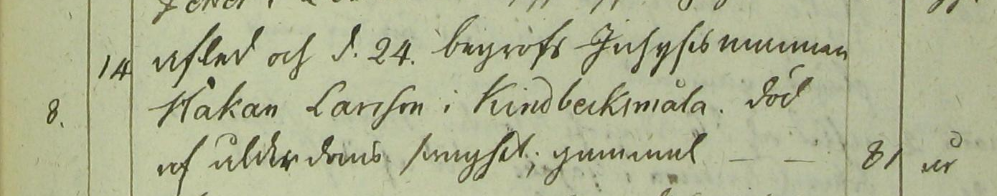 14 afled och d. 24. begrofs Inhysesmannen
8. Håkan Larsson i Kindbecksmåla. död
af ålderdoms svaghet, gammal — — 81 år